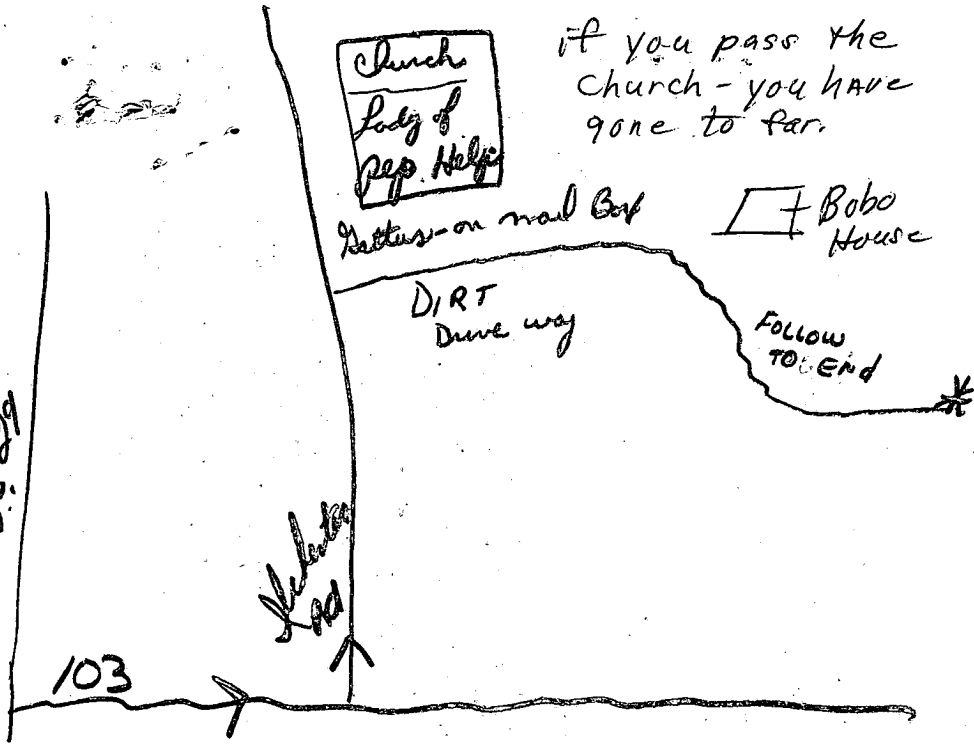 Church
Lady of
Pep. Help
if you pass the
Church - you have
gone to far.
Gettus - on mail Box
Bobo
House
DIRT
Drive way
FOLLOW
TO End
Rd
103